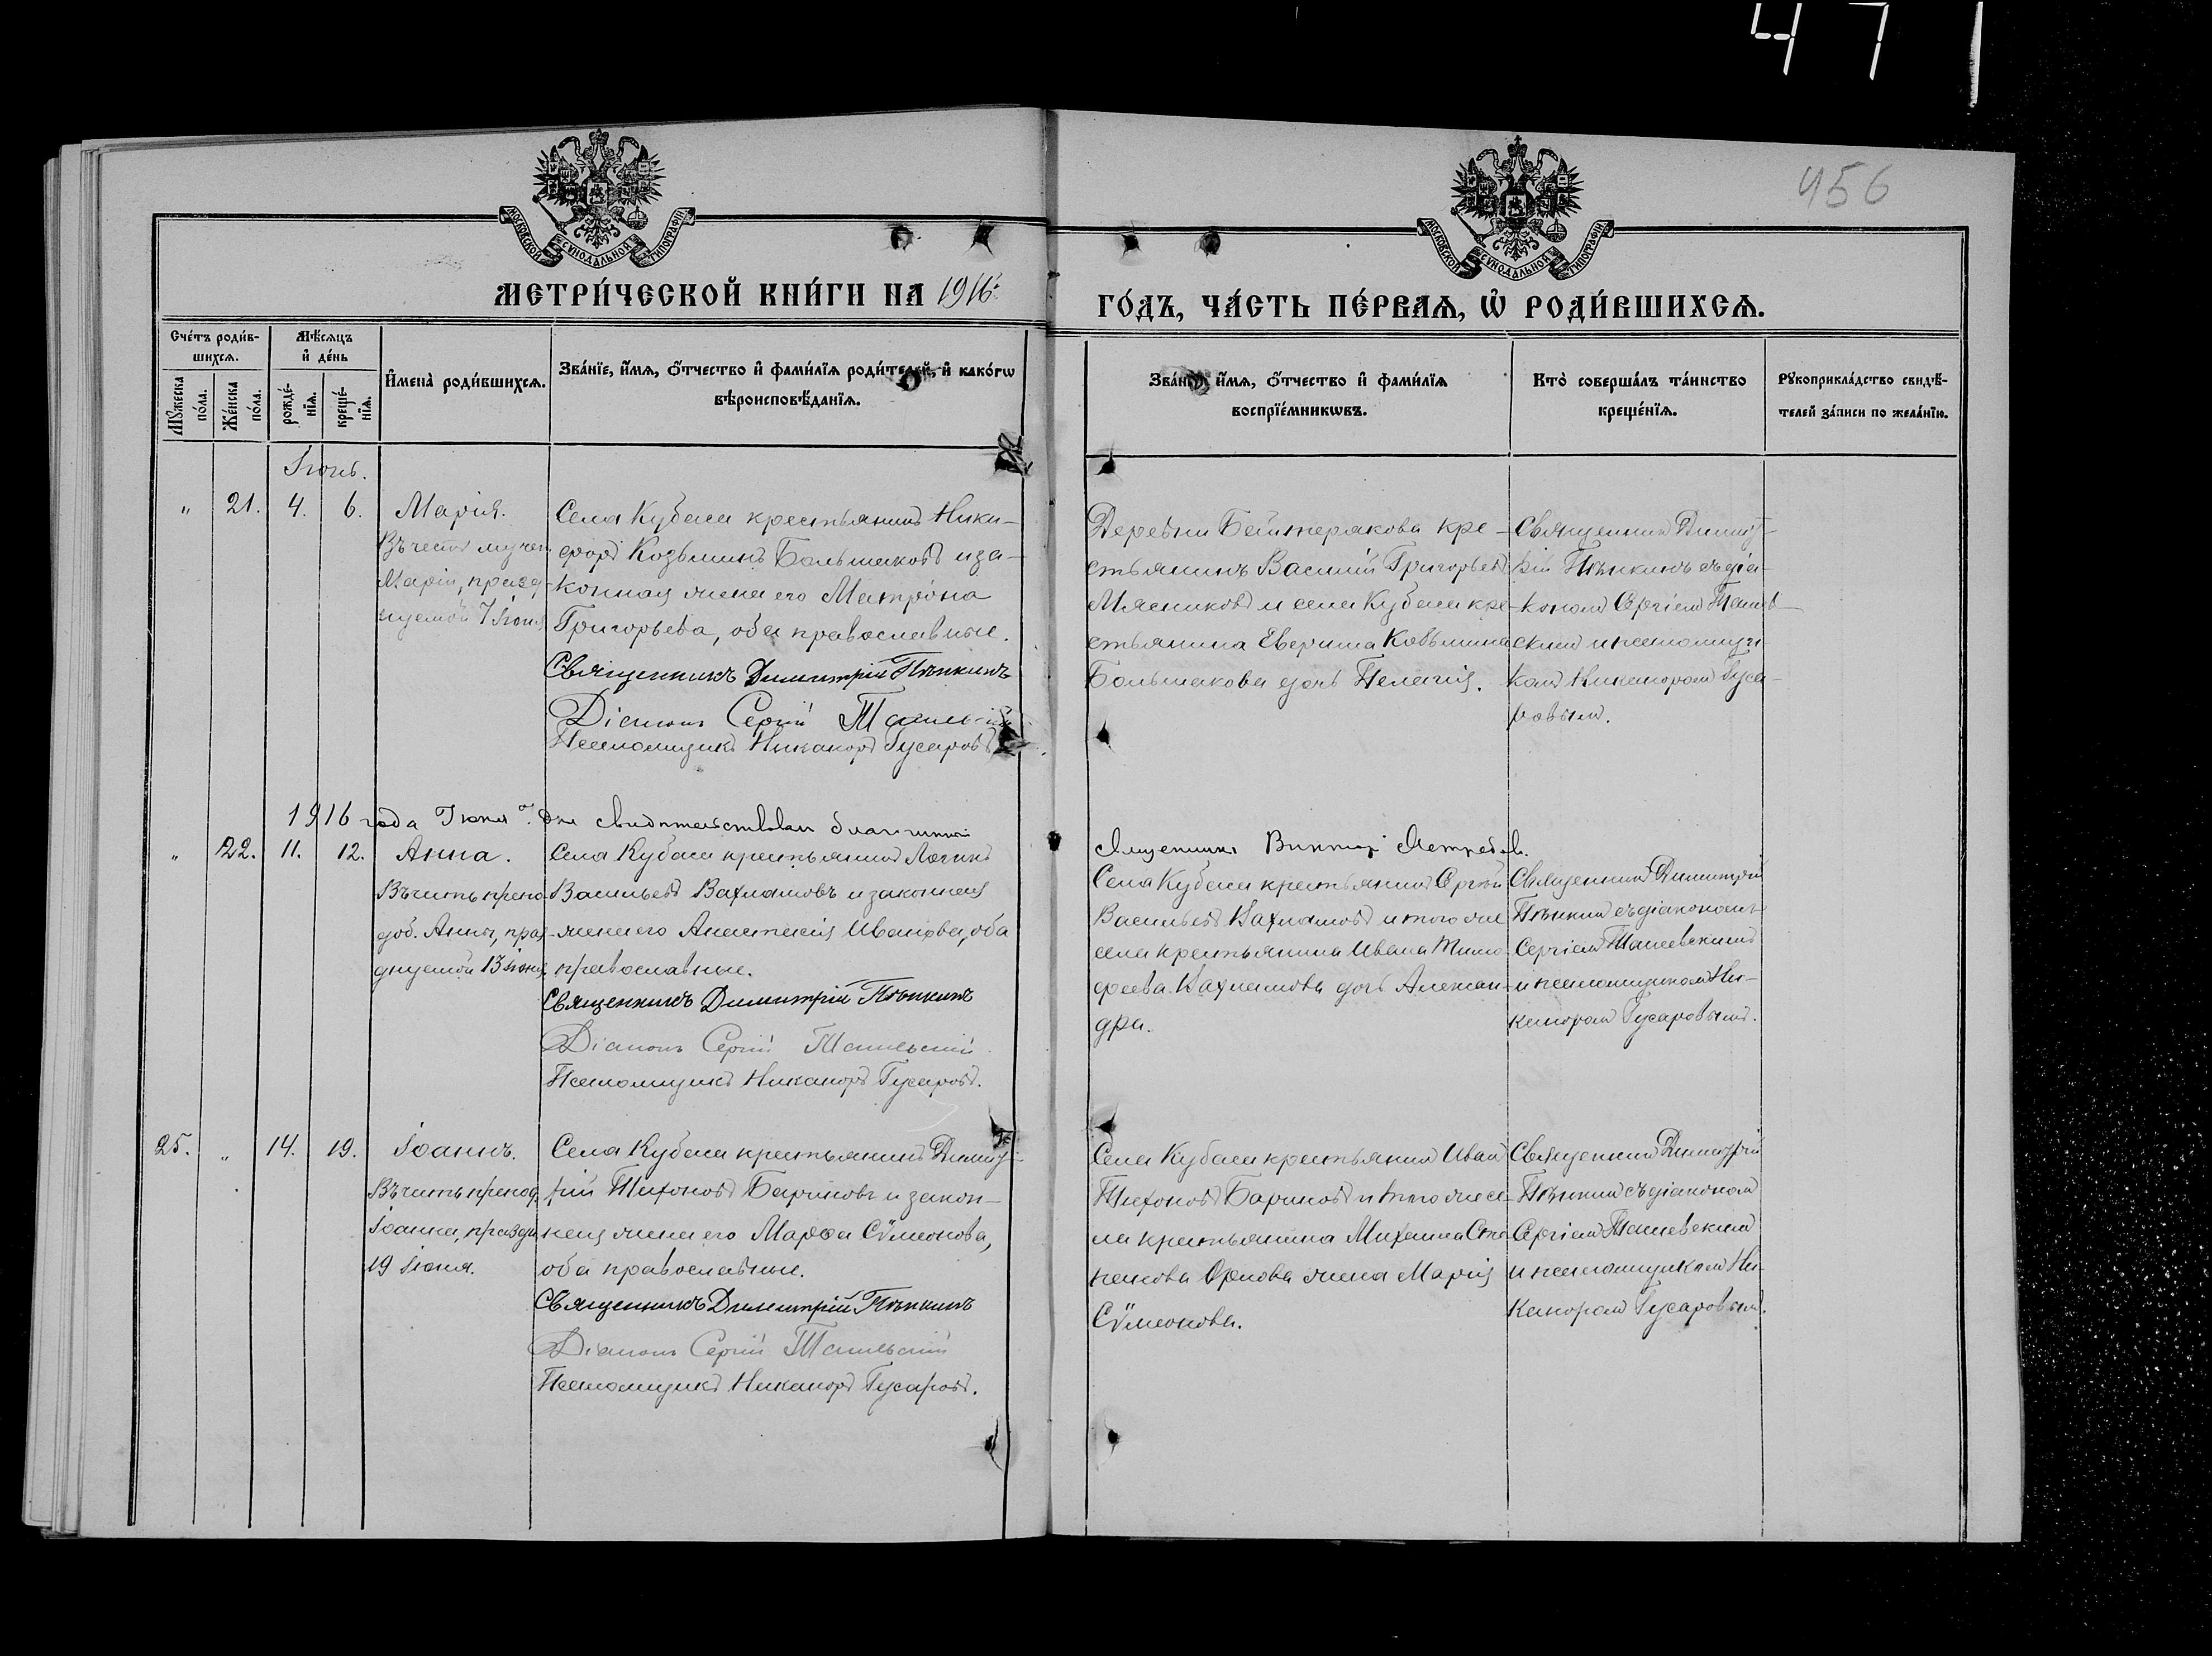 471
456
МОСКОВСКОЙ СѴНОДАЛЬНОЙ ТИПОГРАФІИ
МОСКОВСКОЙ СѴНОДАЛЬНОЙ ТИПОГРАФІИ
МЕТРИ́ЧЕСКОЙ КНИ́ГИ НА 1916
ГО́ДЪ, ЧА́СТЬ ПЕ́РВАЯ, Ѡ РОДИ́ВШИХСЯ.
Сче́тъ роди́в-
шихся.
Мꙋжеска по́ла.
Же́нска по́ла.
Мѣ́сяцъ
и де́нь
рожде́-
нїя.
креще́-
нїя.
Имена̀ роди́вшихся.
Зва́нїе, и́мя, о́тчество и фами́лїя роди́телей, и како́гѡ
вѣроисповѣ́данїя.
Зва́нїе, и́мя, о́тчество и фами́лїя
воспрїе́мникѡвъ.
Кто̀ соверша́лъ та́инство
креще́нїя.
Рꙋкоприкла́дство свидѣ́-
телей за́писи по жела́нїю.
Іюнь.
" 21. 4. 6. Марія.
Въ честь мучен.
Маріи, празд-
нуемой 7 Іюня
Села Кубаса крестьянинъ Ники-
форъ Козьминъ Большаковъ и за-
конная жена его Матрона
Григорьева, оба православные.
Священникъ Димитрій Пѣнкинъ
Діаконъ Сергій
Псаломщикъ Никаноръ Гусаровъ
Деревни Бейтерякова кре-
стьянинъ Василій Григорьевъ
Мясниковъ и села Кубаса кре-
стьянина Козьмина
Большакова дочь Пелагія.
Священникъ Димит-
рій Пѣнкинъ съ діа-
кономъ Сергіемъ
скимъ и псаломщи-
комъ Никаноромъ Гуса-
ровымъ.
1916 года Іюня дня свидѣтельствовалъ благочинный
Священникъ Викторъ Ястребовъ.
" 22. 11. 12. Анна.
Въ честь препо-
доб. Анны, праз-
днуемой 13 Іюня.
Села Кубаса крестьянинъ Логинъ
Васильевъ Вахламовъ и законная
жена его Анастасія Иванова, оба
православные.
Священникъ Димитрій Пѣнкинъ
Діаконъ Сергій
Псаломщикъ Никаноръ Гусаровъ.
Села Кубаса крестьянинъ Сергѣй
Васильевъ Вахламовъ и того же
села крестьянина Ивана Тимо-
феева Вахламова дочь Алексан-
дра.
Священникъ Димитрій
Пѣнкинъ съ діакономъ
Сергіемъ
и псаломщикомъ Ни-
каноромъ Гусаровымъ.
25. " 14. 19. Іоаннъ.
Въ честь препод.
Іоанна, праздн.
19 Іюня.
Села Кубаса крестьянинъ Димит-
рій Тихоновъ Бариновъ и закон-
ная жена его Марѳа Сѵмеонова,
оба православные.
Священникъ Димитрій Пѣнкинъ
Діаконъ Сергій
Псаломщикъ Никаноръ Гусаровъ.
Села Кубаса крестьянинъ Иванъ
Тихоновъ Бариновъ и того же се-
ла крестьянина Михаила Сте-
панова Орлова жена Марія
Сѵмеонова.
Священникъ Димитрій
Пѣнкинъ съ діакономъ
Сергіемъ
и псаломщикомъ Ни-
каноромъ Гусаровымъ.